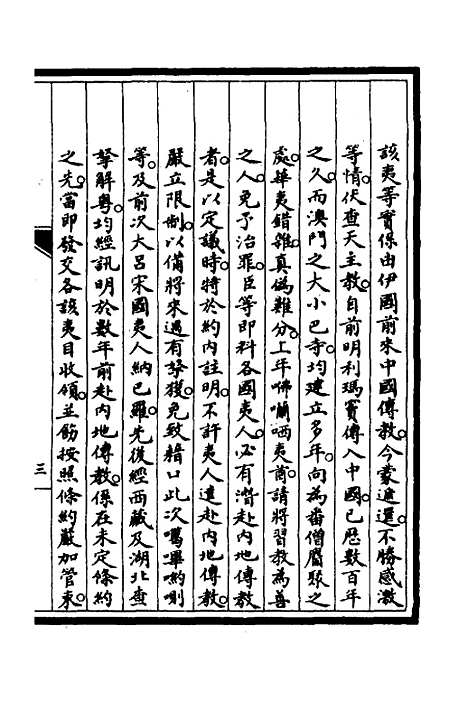 該夷等實係由伊國前來中國傳教。今蒙遞還。不勝感激
等情。伏查天主教。自前明利瑪竇傳入中國。已歷數百年
之久。而澳門之大小巴寺。均建立多年。向為番僧屬聚之
處。華夷錯雜。真偽難分。上年咈囒哂夷酋。請將習教為善
之人。免予治罪。臣等即料各國夷人。必有潛赴內地傳教
者。是以定議時。特於約內註明。不許夷人遠赴內地傳教。
嚴立限制。以備將來遇有拏獲。免致藉口。此次噶畢約唎
等。及前次大呂宋國夷人納巴羅。先後經西藏及湖北查
拏解粵。均經訊明於數年前赴內地傳教。係在未定條約
之先。當即發交各該夷目收領。並飭按照條約嚴加管束。
三